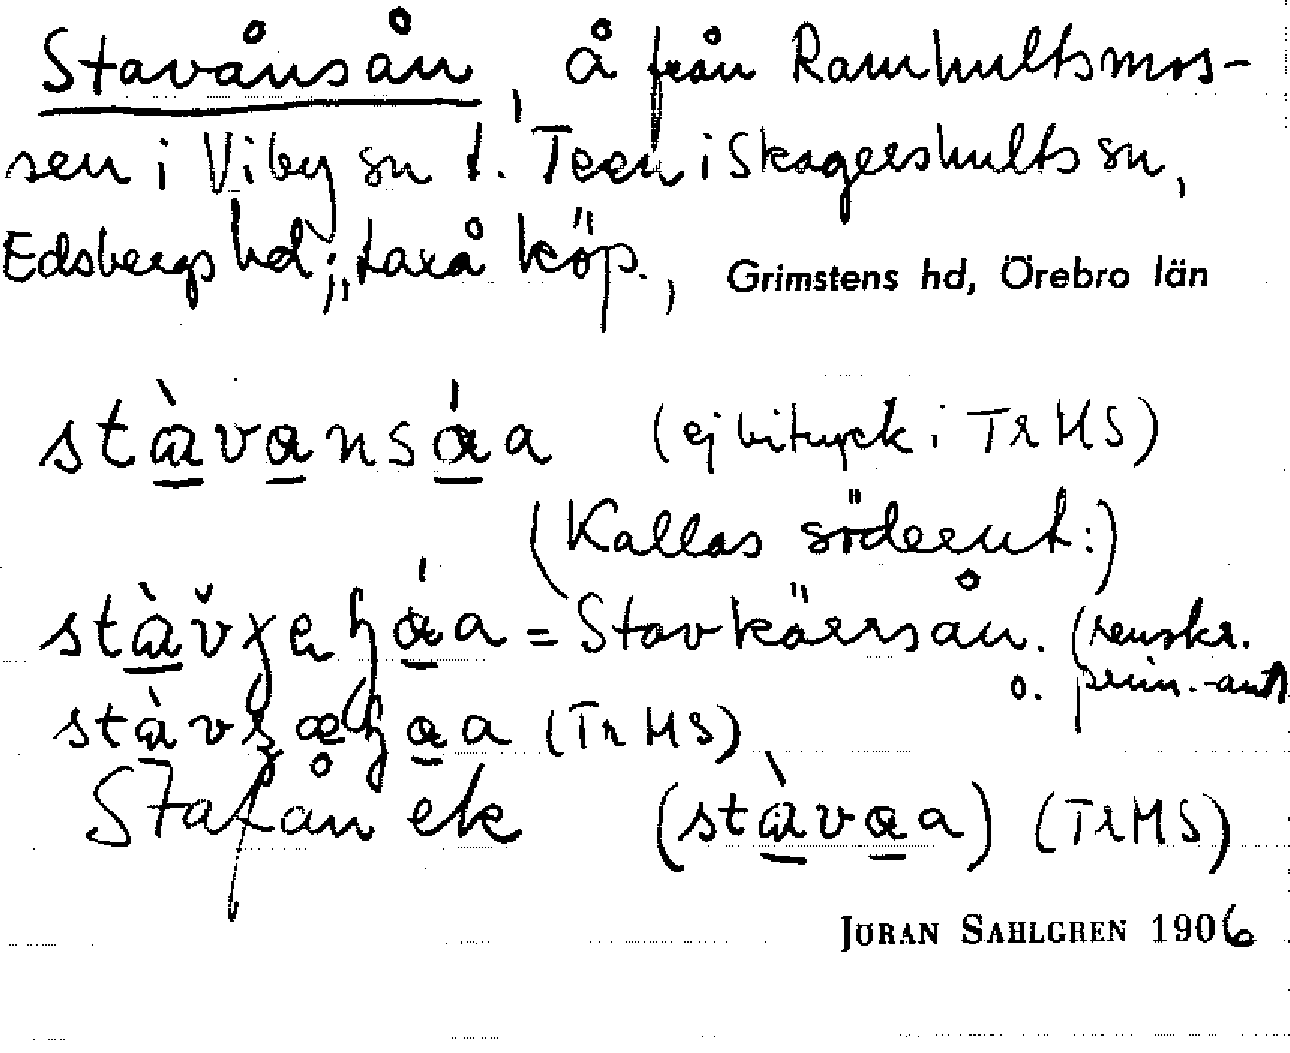 Stavånsån, å från Ramhultsmos-
sen i Viby sn t. Teen i Skagershults sn,
Edsbergs hd; "taxå köp., Grimstens hd, Örebro län
stàvansáa (ej bitryck i TrMS)
(Kallas söderut:)
= Stavkärrsån. (renskr.
o. prim.-ant)
(TrMS)
Stafån ek (stàvaa) (TrMS)
JÖRAN SAHLGREN 1906